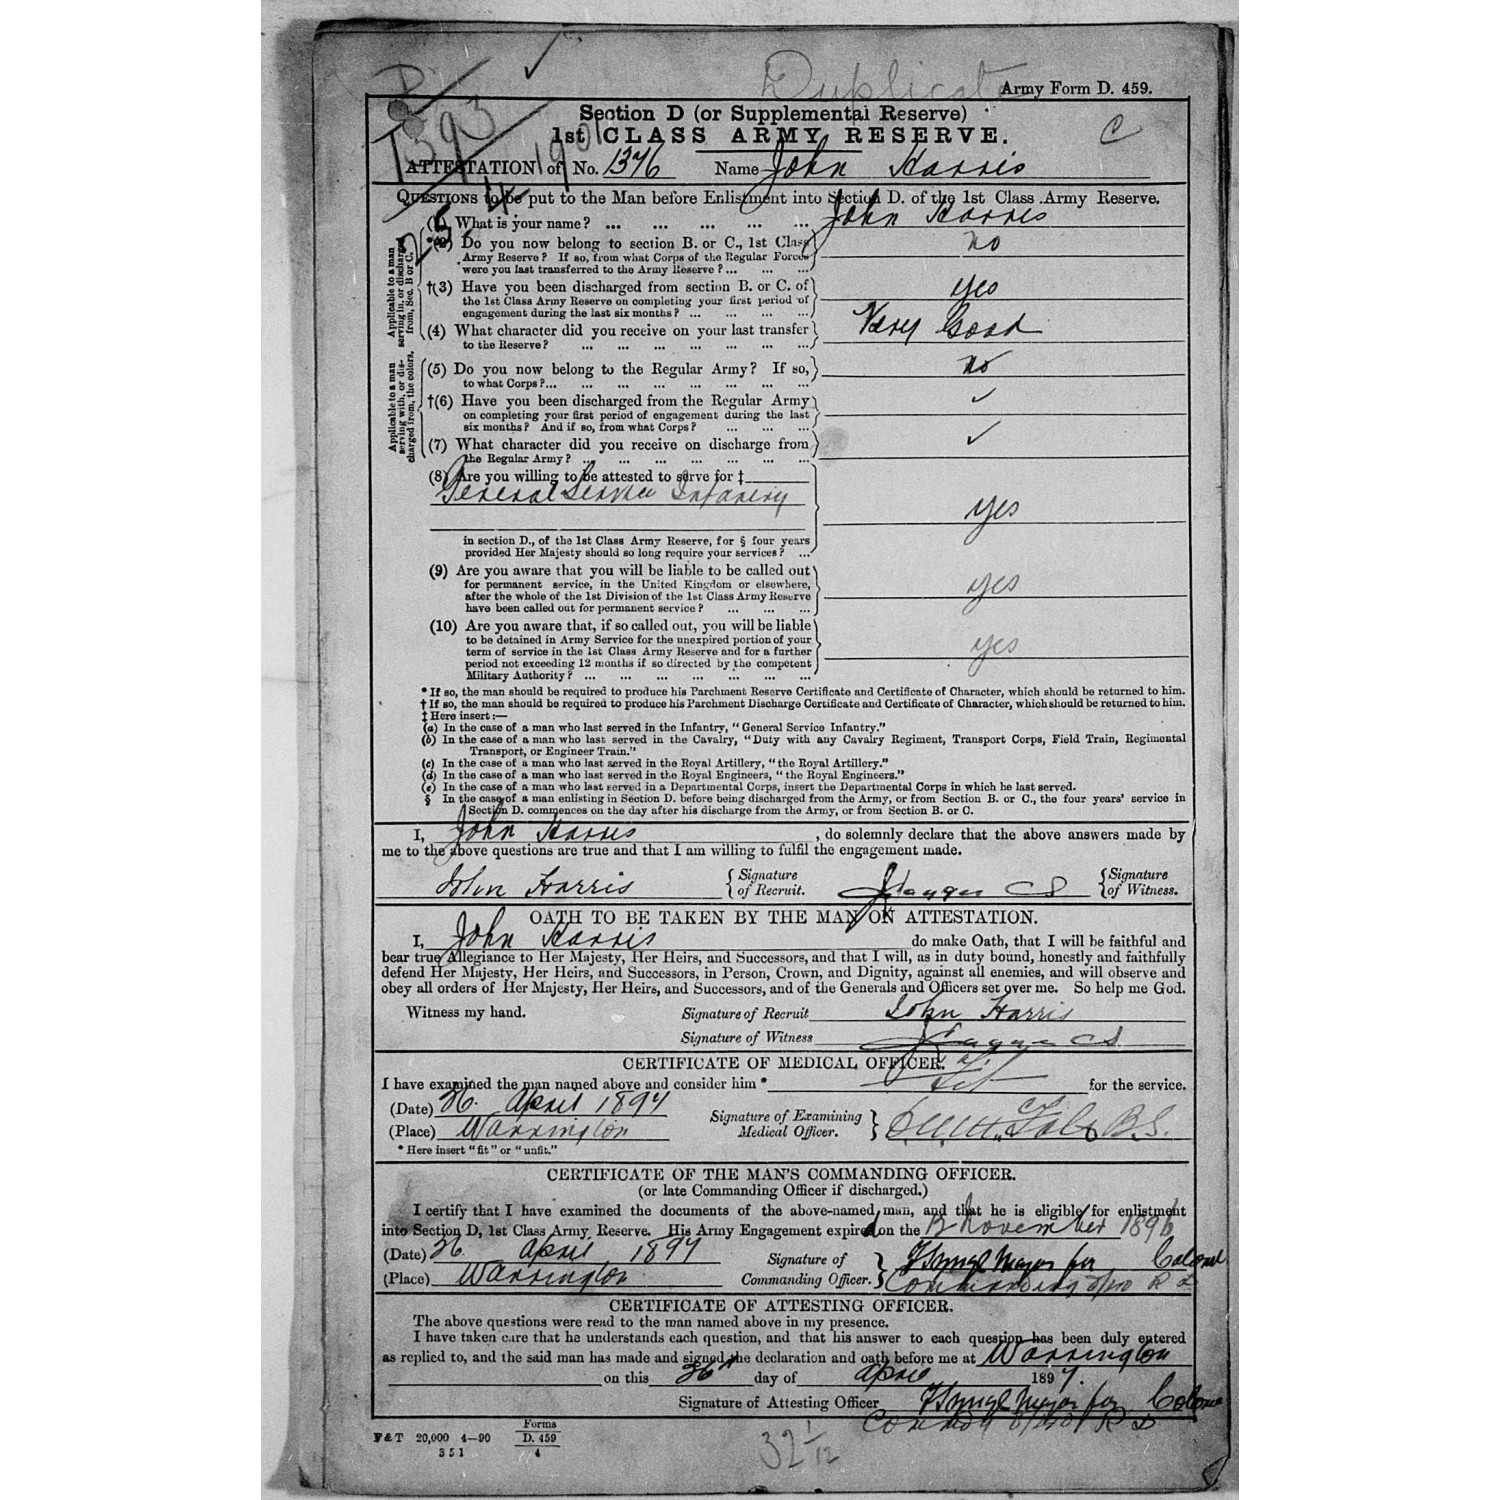 Duplicate
Army Form D. 459.
Section D (or Supplemental Reserve)
1st CLASS ARMY RESERVE.
C
1393
1901
ATTESTATION of No. 1376 Name John Harris
QUESTIONS to be put to the Man before Enlistment into Section D. of the 1st Class Army Reserve.
Applicable to a man serving in, or discharged from, Sec. B or C.
(1) What is your name? ... ... ... ... ... John Harris
*(2) Do you now belong to section B. or C., 1st Class no
Army Reserve? If so, from what Corps of the Regular Forces
were you last transferred to the Army Reserve? ... ... ...
†(3) Have you been discharged from section B. or C. of yes
the 1st Class Army Reserve on completing your first period of
engagement during the last six months? ... ... ... ...
(4) What character did you receive on your last transfer Very Good
to the Reserve? ... ... ... ... ... ... ...
Applicable to a man serving with, or discharged from, the colors,
(5) Do you now belong to the Regular Army? If so, no
to what Corps?... ... ... ... ... ... ... ...
†(6) Have you been discharged from the Regular Army ✓
on completing your first period of engagement during the last
six months? And if so, from what Corps? ... ... ...
(7) What character did you receive on discharge from ✓
the Regular Army? ... ... ... ... ... ... ...
(8) Are you willing to be attested to serve for ‡
General Service Infantry yes
in section D., of the 1st Class Army Reserve, for § four years
provided Her Majesty should so long require your services? ...
(9) Are you aware that you will be liable to be called out
for permanent service, in the United Kingdom or elsewhere, yes
after the whole of the 1st Division of the 1st Class Army Reserve
have been called out for permanent service? ... ... ...
(10) Are you aware that, if so called out, you will be liable
to be detained in Army Service for the unexpired portion of your yes
term of service in the 1st Class Army Reserve and for a further
period not exceeding 12 months if so directed by the competent
Military Authority? ... ... ... ... ... ... ...
* If so, the man should be required to produce his Parchment Reserve Certificate and Certificate of Character, which should be returned to him.
† If so, the man should be required to produce his Parchment Discharge Certificate and Certificate of Character, which should be returned to him.
‡ Here insert:—
(a) In the case of a man who last served in the Infantry, "General Service Infantry."
(b) In the case of a man who last served in the Cavalry, "Duty with any Cavalry Regiment, Transport Corps, Field Train, Regimental
Transport, or Engineer Train."
(c) In the case of a man who last served in the Royal Artillery, "the Royal Artillery."
(d) In the case of a man who last served in the Royal Engineers, "the Royal Engineers."
(e) In the case of a man who last served in a Departmental Corps, insert the Departmental Corps in which he last served.
§ In the case of a man enlisting in Section D. before being discharged from the Army, or from Section B. or C., the four years' service in
Section D. commences on the day after his discharge from the Army, or from Section B. or C.
I, John Harris, do solemnly declare that the above answers made by
me to the above questions are true and that I am willing to fulfil the engagement made.
John Harris { Signature of Recruit. CS { Signature of Witness.
OATH TO BE TAKEN BY THE MAN ON ATTESTATION.
I, John Harris do make Oath, that I will be faithful and
bear true Allegiance to Her Majesty, Her Heirs, and Successors, and that I will, as in duty bound, honestly and faithfully
defend Her Majesty, Her Heirs, and Successors, in Person, Crown, and Dignity, against all enemies, and will observe and
obey all orders of Her Majesty, Her Heirs, and Successors, and of the Generals and Officers set over me. So help me God.
Witness my hand. Signature of Recruit John Harris
Signature of Witness CS
CERTIFICATE OF MEDICAL OFFICER.
I have examined the man named above and consider him * Fit for the service.
(Date) 26 April 1897
(Place) Warrington
Signature of Examining Medical Officer.
* Here insert "fit" or "unfit."
CERTIFICATE OF THE MAN'S COMMANDING OFFICER.
(or late Commanding Officer if discharged.)
I certify that I have examined the documents of the above-named man, and that he is eligible for enlistment
into Section D, 1st Class Army Reserve. His Army Engagement expired on the 12 November 1896
(Date) 26. April 1897 Signature of Major for Colonel
(Place) Warrington Commanding Officer. Commanding
CERTIFICATE OF ATTESTING OFFICER.
The above questions were read to the man named above in my presence.
I have taken care that he understands each question, and that his answer to each question has been duly entered
as replied to, and the said man has made and signed the declaration and oath before me at Warrington
on this 26th day of April 1897.
Signature of Attesting Officer Major for Colonel
F & T 20,000 4—90
351
Forms
D. 459
4
32 1/12